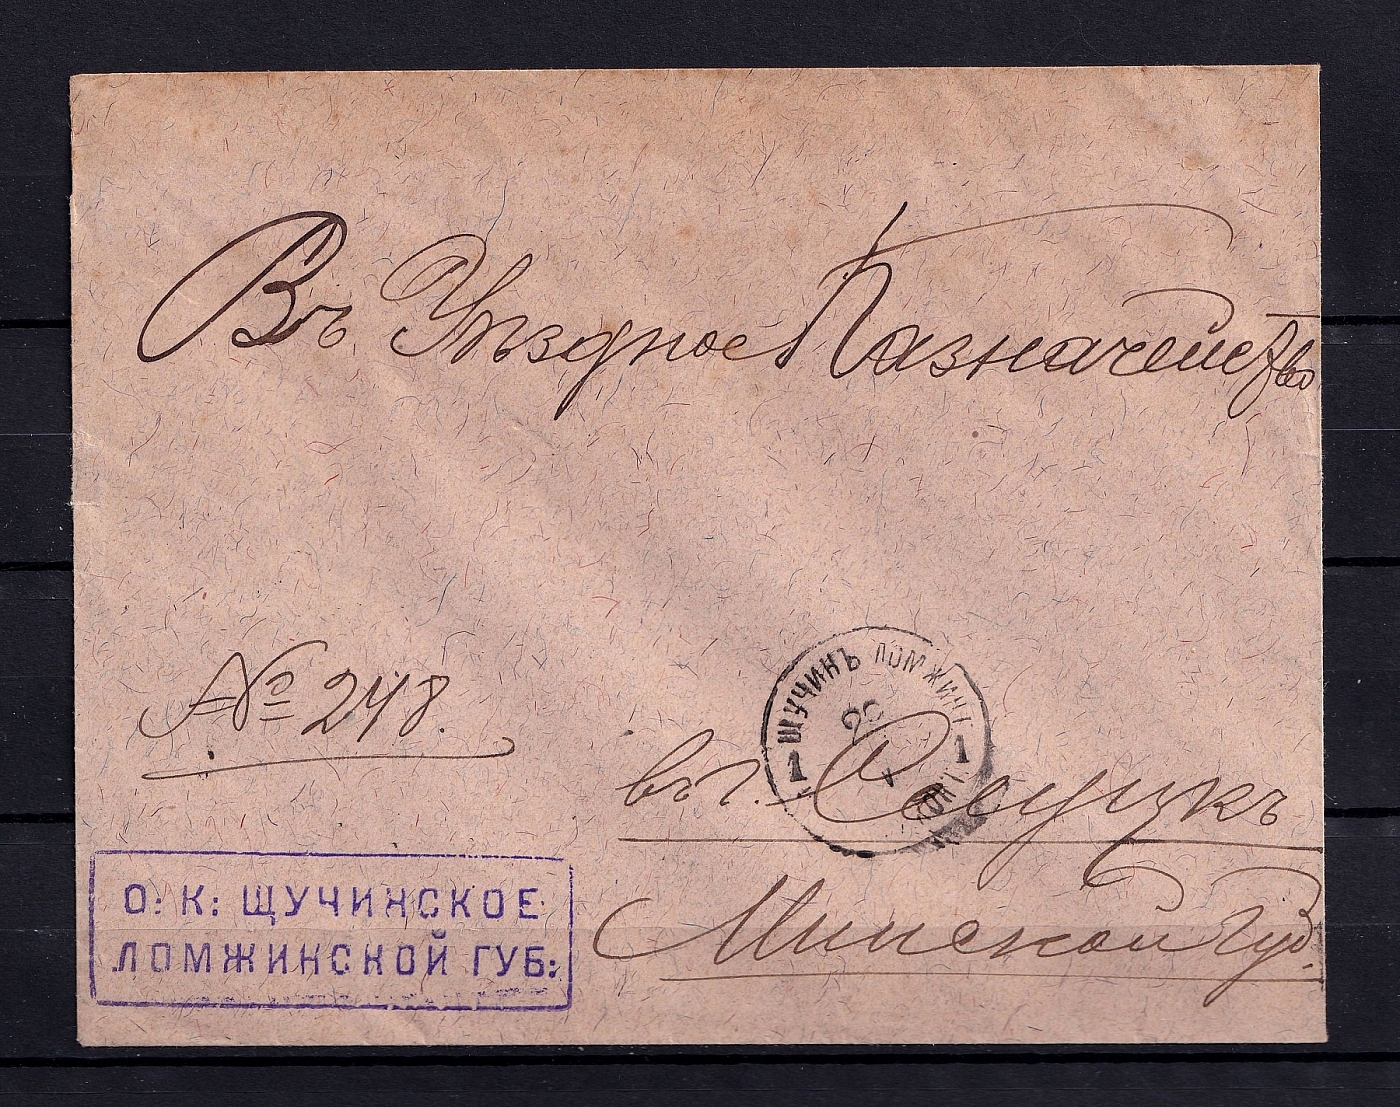 Въ Уѣздное Казначейство
№ 248.
ЩУЧИНЪ ЛОМЖИН
1 1
въ г. Слуцкъ
Минской губ.
О: К: ЩУЧИНСКОЕ
ЛОМЖИНСКОЙ ГУБ: